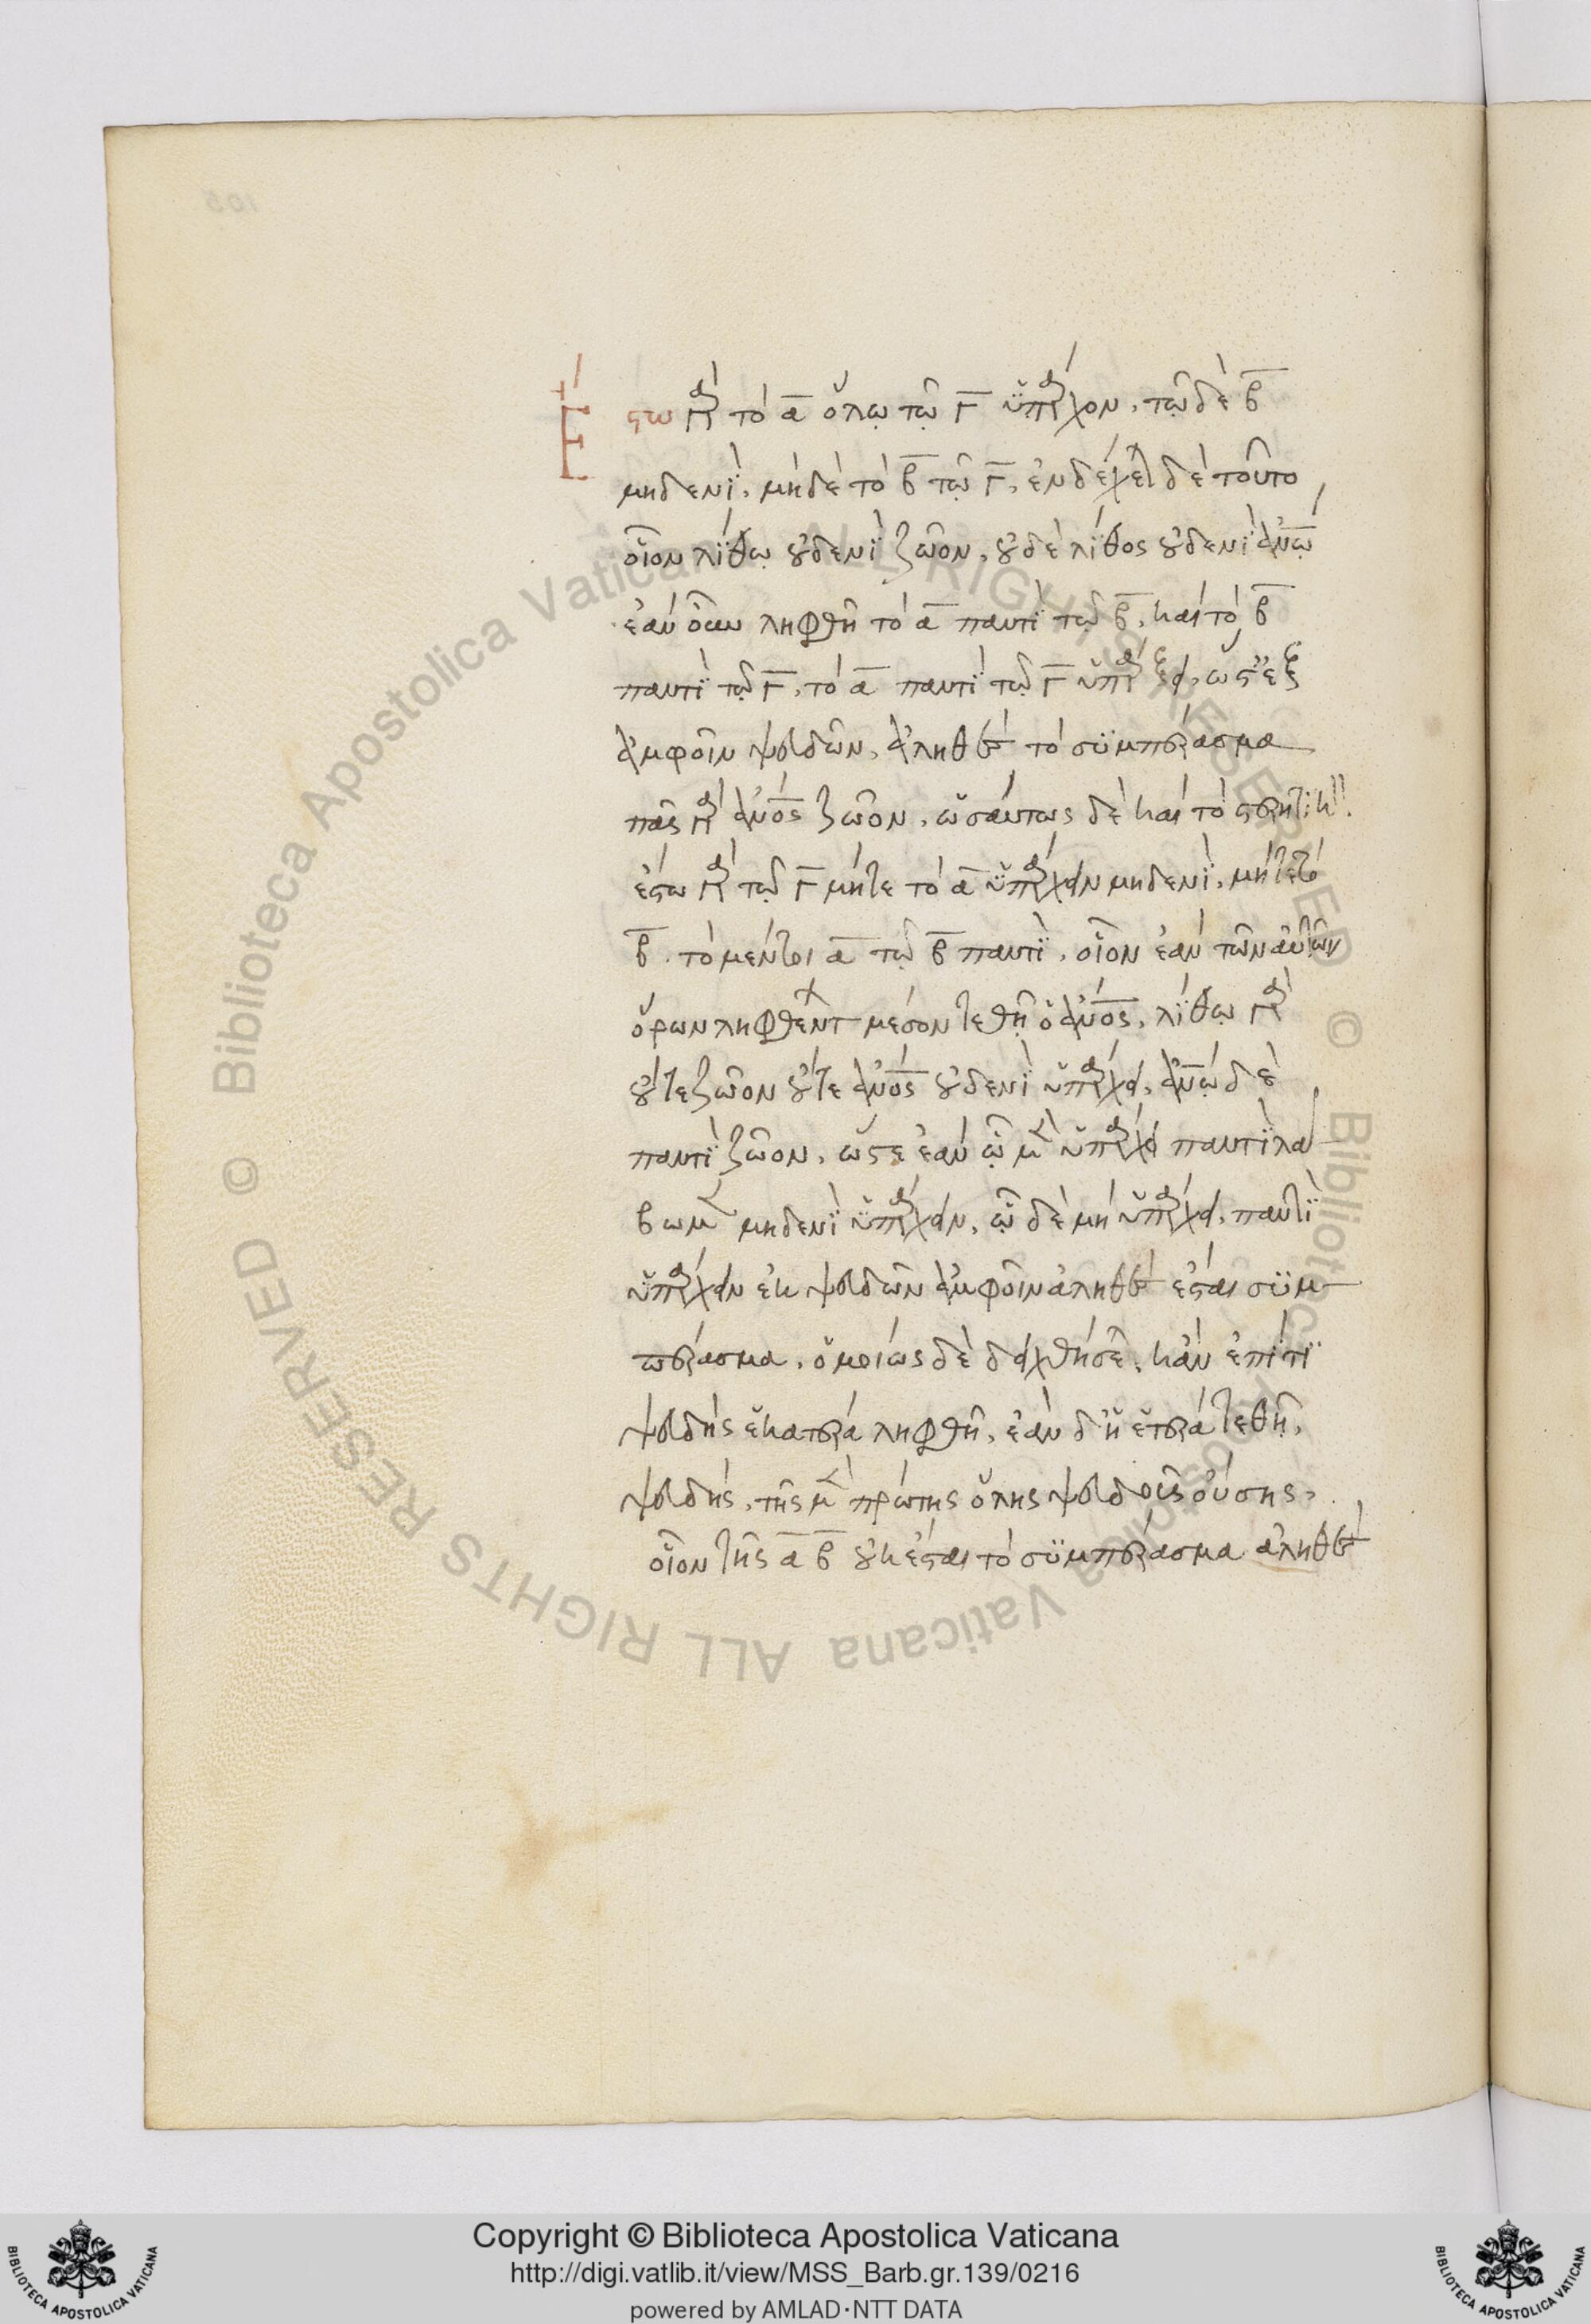 Ἔςω γὰρ τὸ α ὅλῳ τῷ Γ ὑπάρχον, τῷ δὲ β
μηδενὶ, μηδὲ τὸ β τῷ Γ, ἐνδέχεται δὲ τοῦτο,
οἷον λίθῳ οὐδενὶ ζῶον, οὐδὲ λίθος οὐδενὶ ἀνῳ
ἐὰν οὖν ληφθῆ τὸ α παντὶ τῷ β, καὶ τὸ β
παντὶ τῷ Γ, τὸ α παντὶ τῷ Γ ὑπάρξει, ὥςτ' ἐξ
ἀμφοῖν ψευδῶν, ἀληθὲς τὸ συμπέρασμα
πᾶς γὰρ ἀνος ζῶον, ὡσαύτως δὲ καὶ τὸ ςερητικὸν.
ἔςω γὰρ τῷ Γ μήτε τὸ α ὑπάρχειν μηδενὶ, μήτε τὸ
β. τὸ μέντοι α τῷ β παντὶ, οἷον ἐὰν τῶν αὐτῶν
ὅρων ληφθέντων μέσον τεθῆ ὁ ἀνος, λίθῳ γὰρ
οὔτε ζῶον οὔτε ἀνος οὐδενὶ ὑπάρχει, ἀνῳ δὲ
παντὶ ζῶον, ὥςε ἐὰν ᾧ μὲν ὑπάρχει παντὶ λά
βωμεν μηδενὶ ὑπάρχειν, ᾧ δὲ μὴ ὑπάρχει, παντὶ
ὑπάρχειν ἐκ ψευδῶν ἀμφοῖν ἀληθὲς ἔςαι συμ
πέρασμα, ὁμοίως δὲ δειχθήσεται, κἂν ἐπί τι
ψευδὴς ἑκατέρα ληφθῆ, ἐὰν δ' ἡ ἑτέρα τεθῆ,
ψευδὴς, τῆς μὲν πρώτης ὅλης ψευδοῦς οὔσης,
οἷον τῆς α β οὐκ ἔςαι τὸ συμπέρασμα ἀληθὲς
Copyright © Biblioteca Apostolica Vaticana
http://digi.vatlib.it/view/MSS_Barb.gr.139/0216
powered by AMLAD·NTT DATA
© Biblioteca Apostolica Vaticana ALL RIGHTS RESERVED
© Biblioteca Apostolica Vaticana ALL RIGHTS RESERVED
BIBLIOTECA APOSTOLICA VATICANA
BIBLIOTECA APOSTOLICA VATICANA